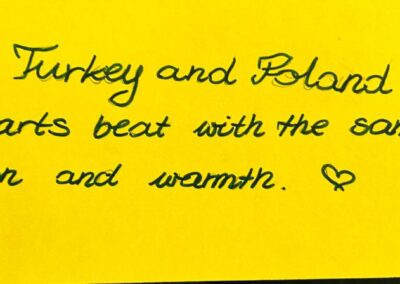 Turkey and Poland
arts beat with the sam
n and warmth. ♡